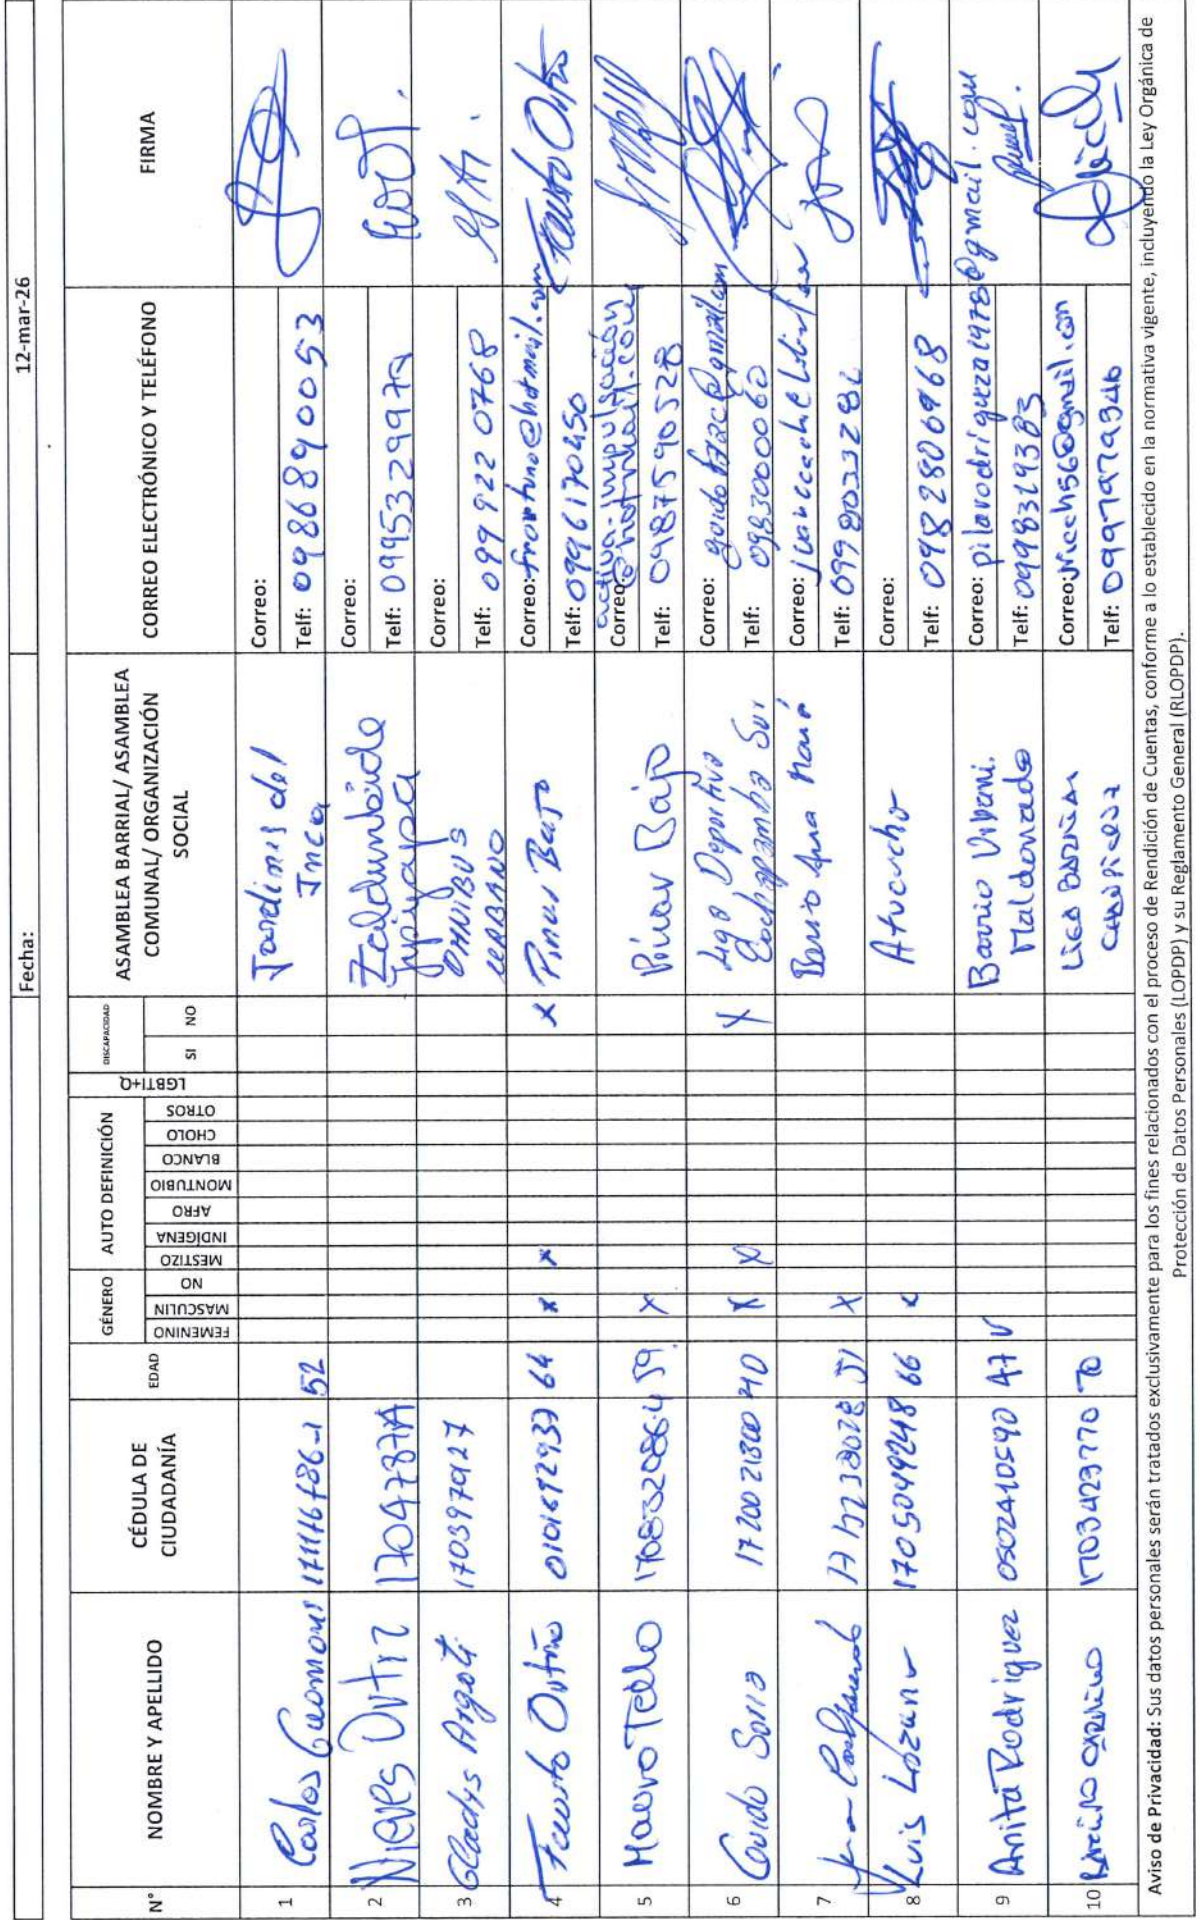 Fecha: 12-mar-26
N° NOMBRE Y APELLIDO CÉDULA DE CIUDADANÍA EDAD GÉNERO AUTO DEFINICIÓN LGBTI+Q DISCAPACIDAD ASAMBLEA BARRIAL/ ASAMBLEA COMUNAL/ ORGANIZACIÓN SOCIAL CORREO ELECTRÓNICO Y TELÉFONO FIRMA
FEMENINO MASCULIN NO MESTIZO INDÍGENA AFRO MONTUBIO BLANCO CHOLO OTROS SI NO
1 Carlos 52 Jardines del Inca Correo:
Telf: 0986890053
2 Nieves Ortiz Zaldumbide Jipijapa Correo:
Telf: 099532997
3 Gladys Argoti 1703979127 OMNIBUS URBANO Correo:
Telf: 0999220768
4 Fausto Ortuño 64 x x x Pinar Bajo Correo: @hotmail.com Fausto Ortuño
Telf: 0996170450
5 Tello 1708320864 59 x Pinar Bajo Correo: activa-impulsación@hotmail.com
Telf: 0987590528
6 Guido 1720021800 40 x x x Liga Deportiva Cochapamba Sur Correo: @gmail.com
Telf: 0983000060
7 51 x Barrio Ana María Correo:
Telf: 0998033282
8 Luis Lozano 1705049248 66 x Atucucho Correo:
Telf: 0982806968
9 Anita Rodriguez 0502410590 47 v Barrio Urbani. Maldonado Correo: pilarodrigueza1978@gmail.com
Telf: 0998319383
10 1703423770 70 Liga Barrial Correo: @gmail.com
Telf: 0997979346
Aviso de Privacidad: Sus datos personales serán tratados exclusivamente para los fines relacionados con el proceso de Rendición de Cuentas, conforme a lo establecido en la normativa vigente, incluyendo la Ley Orgánica de
Protección de Datos Personales (LOPDP) y su Reglamento General (RLOPDP).